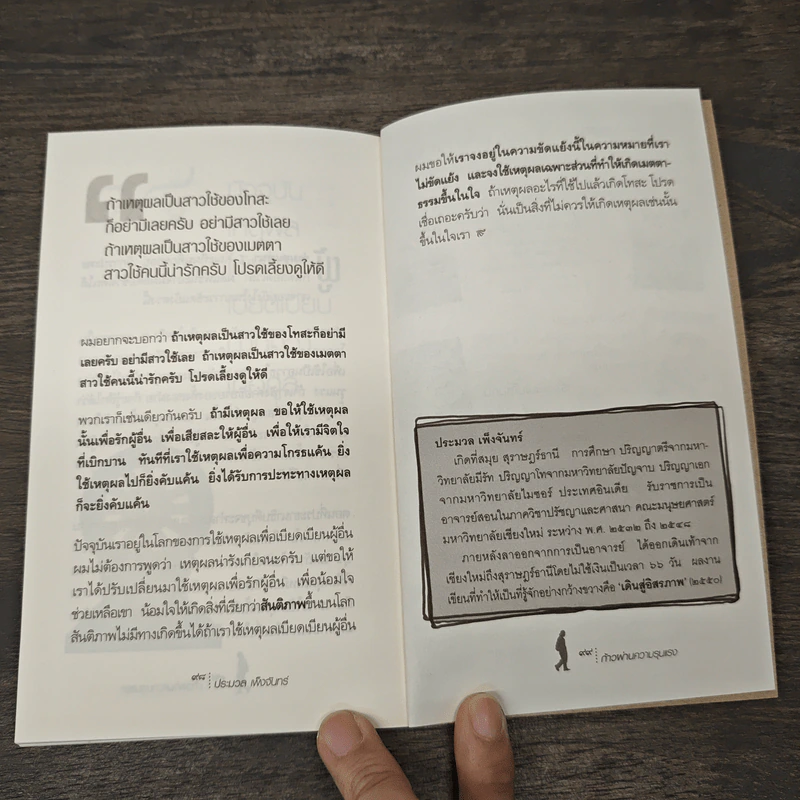 ถ้าเหตุผลเป็นสาวใช้ของโทสะ
ก็อย่ามีเลยครับ อย่ามีสาวใช้เลย
ถ้าเหตุผลเป็นสาวใช้ของเมตตา
สาวใช้คนนี้น่ารักครับ โปรดเลี้ยงดูให้ดี
ผมอยากจะบอกว่า ถ้าเหตุผลเป็นสาวใช้ของโทสะก็อย่ามี
เลยครับ อย่ามีสาวใช้เลย ถ้าเหตุผลเป็นสาวใช้ของเมตตา
สาวใช้คนนี้น่ารักครับ โปรดเลี้ยงดูให้ดี
พวกเราก็เช่นเดียวกันครับ ถ้ามีเหตุผล ขอให้ใช้เหตุผล
นั้นเพื่อรักผู้อื่น เพื่อเสียสละให้ผู้อื่น เพื่อให้เรามีจิตใจ
ที่เบิกบาน ทันทีที่เราใช้เหตุผลเพื่อความโกรธแค้น ยิ่ง
ใช้เหตุผลไปก็ยิ่งคับแค้น ยิ่งได้รับการปะทะทางเหตุผล
ก็จะยิ่งคับแค้น
ปัจจุบันเราอยู่ในโลกของการใช้เหตุผลเพื่อเบียดเบียนผู้อื่น
ผมไม่ต้องการพูดว่า เหตุผลน่ารังเกียจนะครับ แต่ขอให้
เราได้ปรับเปลี่ยนมาใช้เหตุผลเพื่อรักผู้อื่น เพื่อน้อมใจ
ช่วยเหลือเขา น้อมใจให้เกิดสิ่งที่เรียกว่าสันติภาพขึ้นบนโลก
สันติภาพไม่มีทางเกิดขึ้นได้ถ้าเราใช้เหตุผลเบียดเบียนผู้อื่น
๙๘ ประมวล เพ็งจันทร์
ผมขอให้เราจงอยู่ในความขัดแย้งนี้ในความหมายที่เรา
ไม่ขัดแย้ง และจงใช้เหตุผลเฉพาะส่วนที่ทำให้เกิดเมตตา-
ธรรมขึ้นในใจ ถ้าเหตุผลอะไรที่ใช้ไปแล้วเกิดโทสะ โปรด
เชื่อเถอะครับว่า นั่นเป็นสิ่งที่ไม่ควรให้เกิดเหตุผลเช่นนั้น
ขึ้นในใจเรา ๙
ประมวล เพ็งจันทร์
เกิดที่สมุย สุราษฎร์ธานี การศึกษา ปริญญาตรีจากมหา-
วิทยาลัยมีรัท ปริญญาโทจากมหาวิทยาลัยปัญจาบ ปริญญาเอก
จากมหาวิทยาลัยไมซอร์ ประเทศอินเดีย รับราชการเป็น
อาจารย์สอนในภาควิชาปรัชญาและศาสนา คณะมนุษยศาสตร์
มหาวิทยาลัยเชียงใหม่ ระหว่าง พ.ศ. ๒๕๓๒ ถึง ๒๕๔๘
ภายหลังลาออกจากการเป็นอาจารย์ ได้ออกเดินเท้าจาก
เชียงใหม่ถึงสุราษฎร์ธานีโดยไม่ใช้เงินเป็นเวลา ๖๖ วัน ผลงาน
เขียนที่ทำให้เป็นที่รู้จักอย่างกว้างขวางคือ 'เดินสู่อิสรภาพ' (๒๕๕๐)
๙๙ ก้าวผ่านความรุนแรง